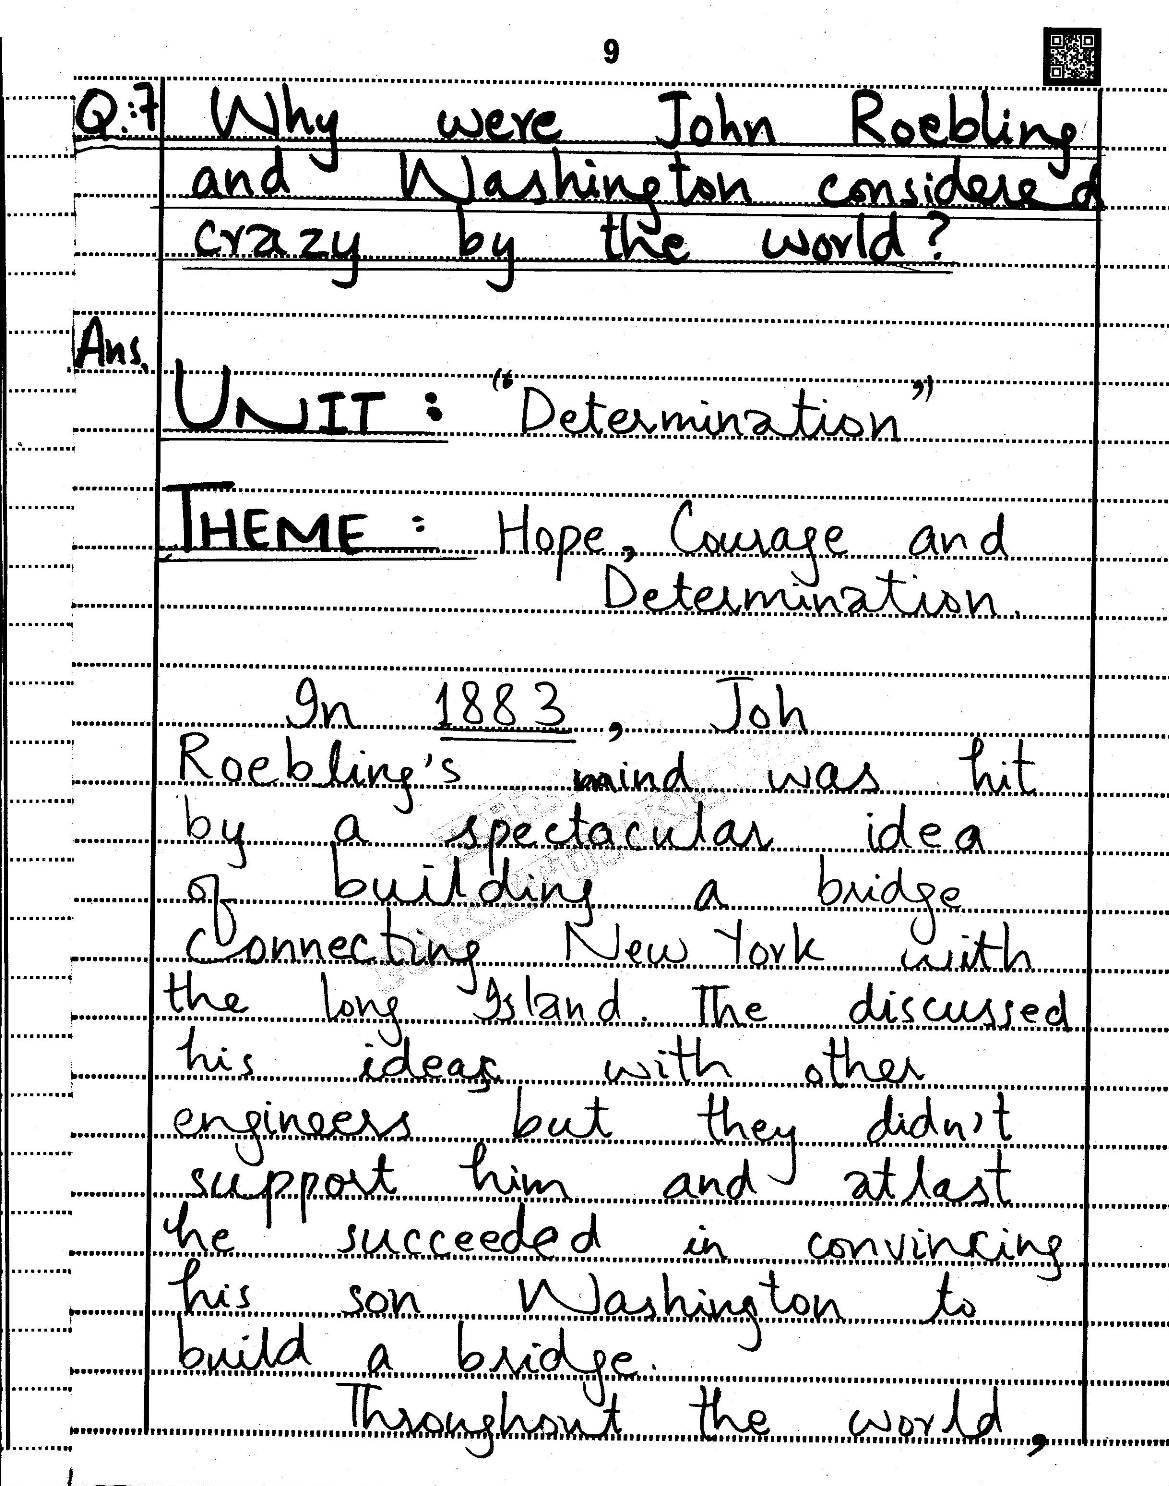 9
Q:7 Why were John Roebling
and Washington considered
crazy by the world?
Ans.
UNIT : "Determination"
THEME : Hope, Courage and
Determination.
In 1883, Joh
Roebling's mind was hit
by a spectacular idea
of building a bridge
connecting New York with
the long Island. The discussed
his ideas with other
engineers but they didn't
support him and atlast
he succeeded in convincing
his son Washington to
build a bridge.
Throughout the world,